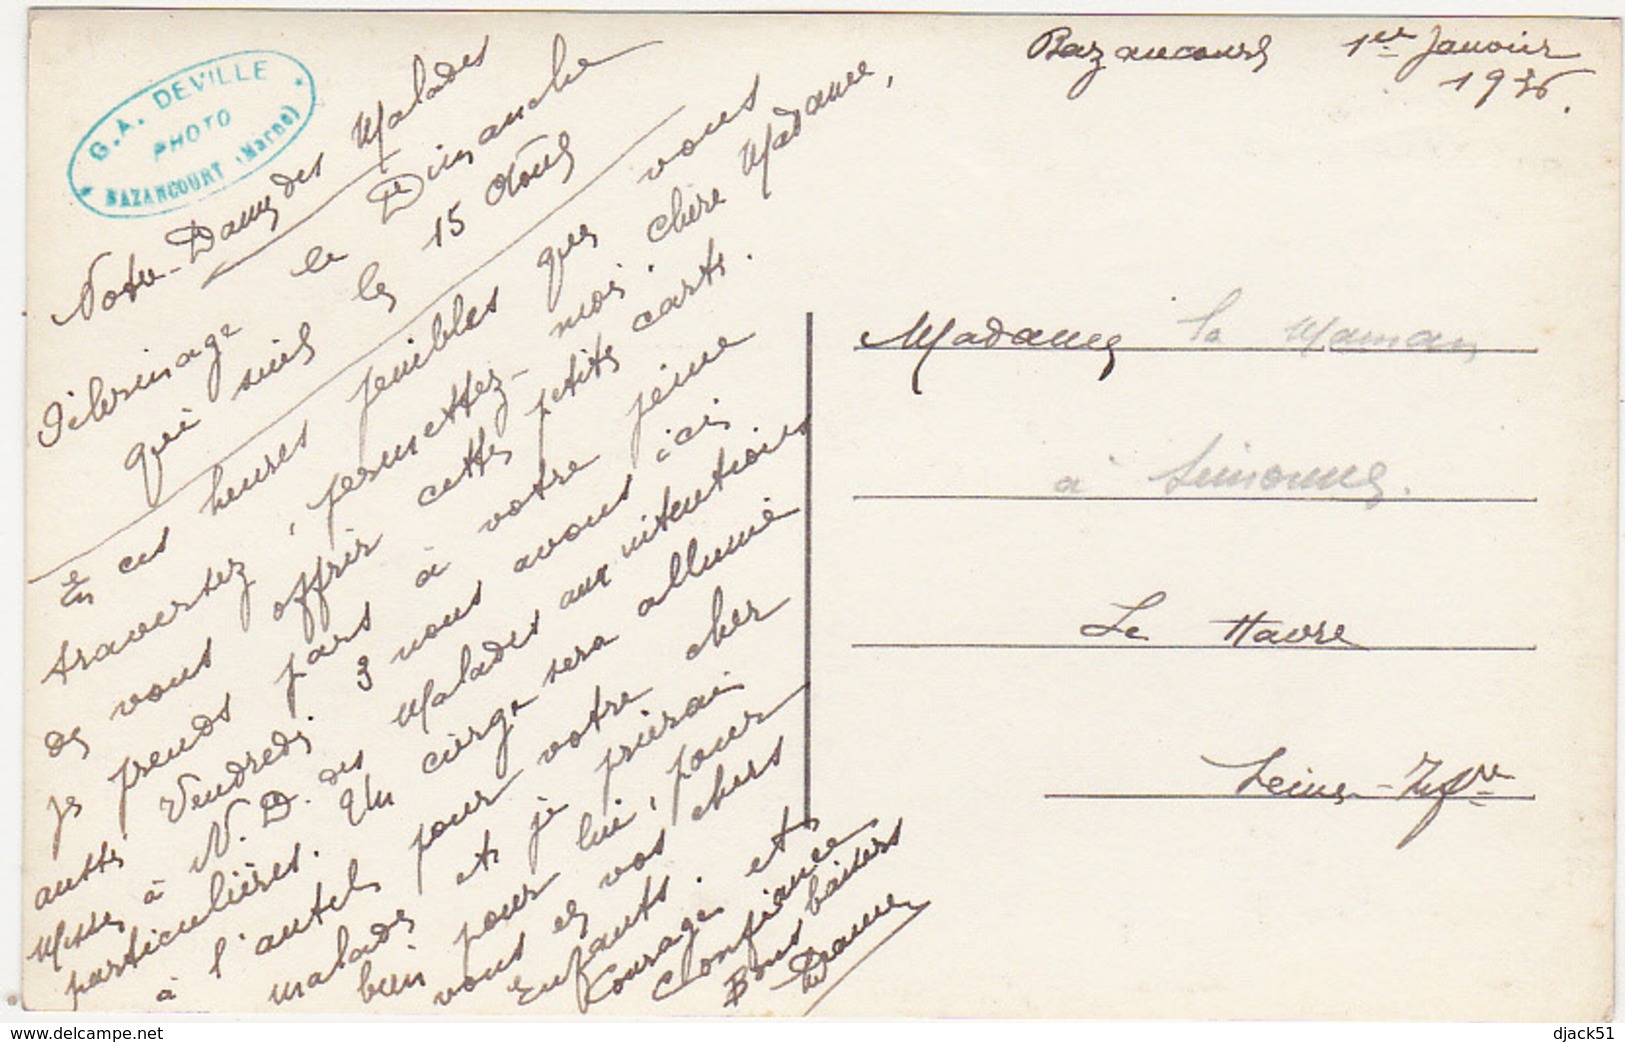 G.A. DEVILLE
PHOTO
BAZANCOURT (Marne)
Bazancourt 1er Janvier
1936.
Notre-Dame des Malades
Pèlerinage le Dimanche
qui suit le 15 Août
En ces heures pénibles que vous
traversez, permettez-moi chère Madame,
de vous offrir cette petite carte.
Je prends part à votre peine
aussi Vendredi 3 nous avons ici
Messe à N.D. des Malades aux intentions
particulières. Un cierge sera allumé
à l'autel pour votre cher
malade et je prierai
bien pour lui, pour
vous et vos chers
Enfants. et
Courage
Confiance
Bons baisers
Madame la Maman
à Simonne.
Le Havre
Seine-Infre
www.delcampe.net
djack51